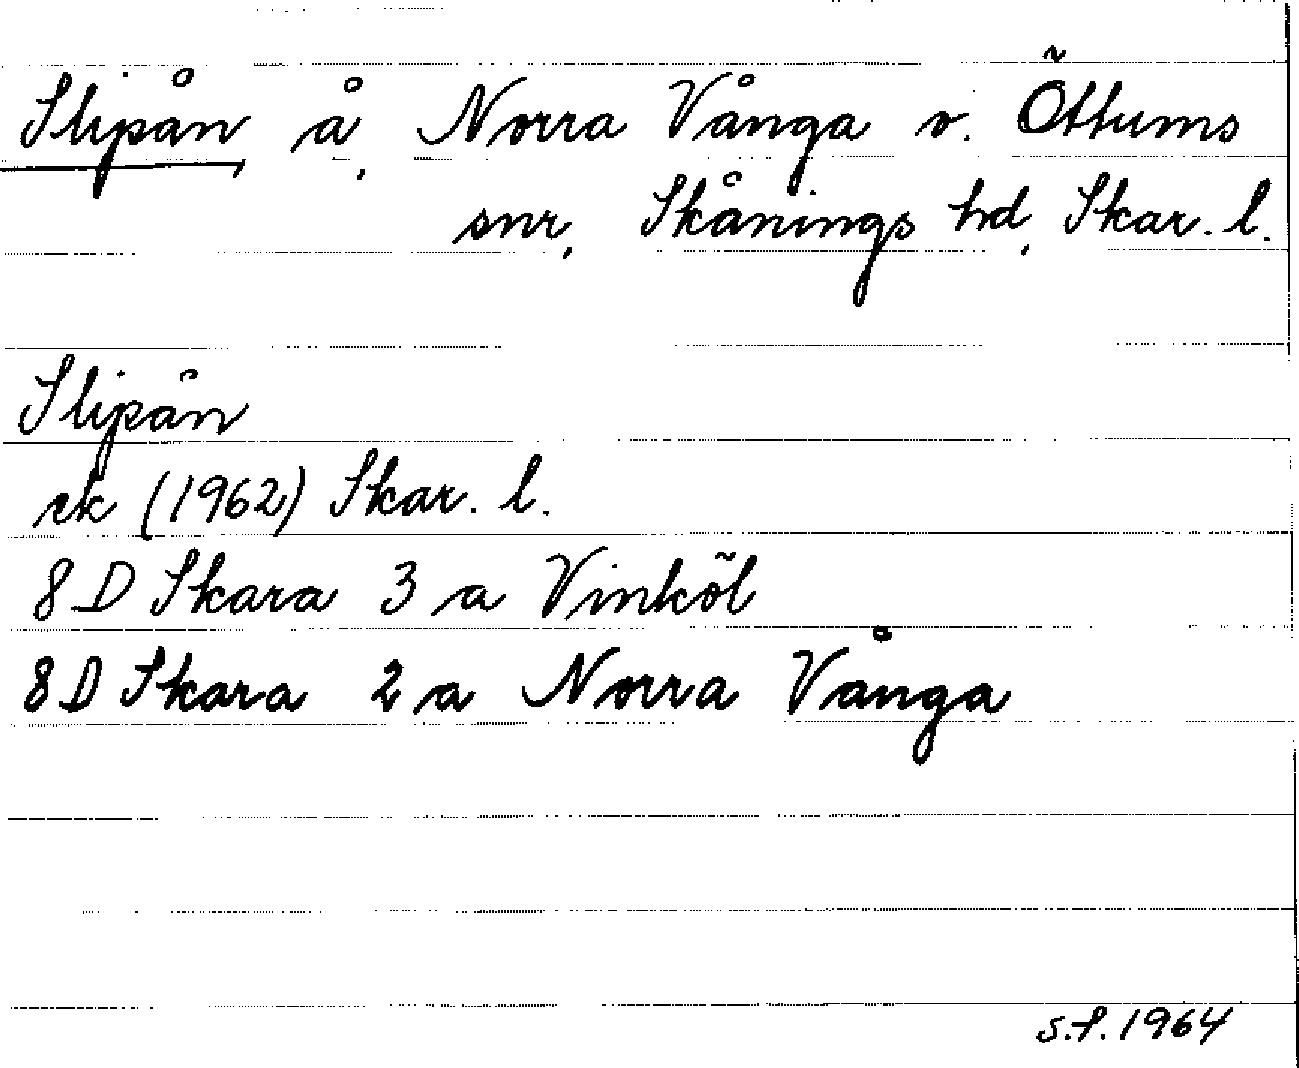 Slipån å, Norra Vånga o. Öttums
snr, Skånings hd, Skar. l.
Slipån
ek (1962) Skar. l.
8D Skara 3 a Vinköl
8D Skara 2 a Norra Vånga
s.f. 1964